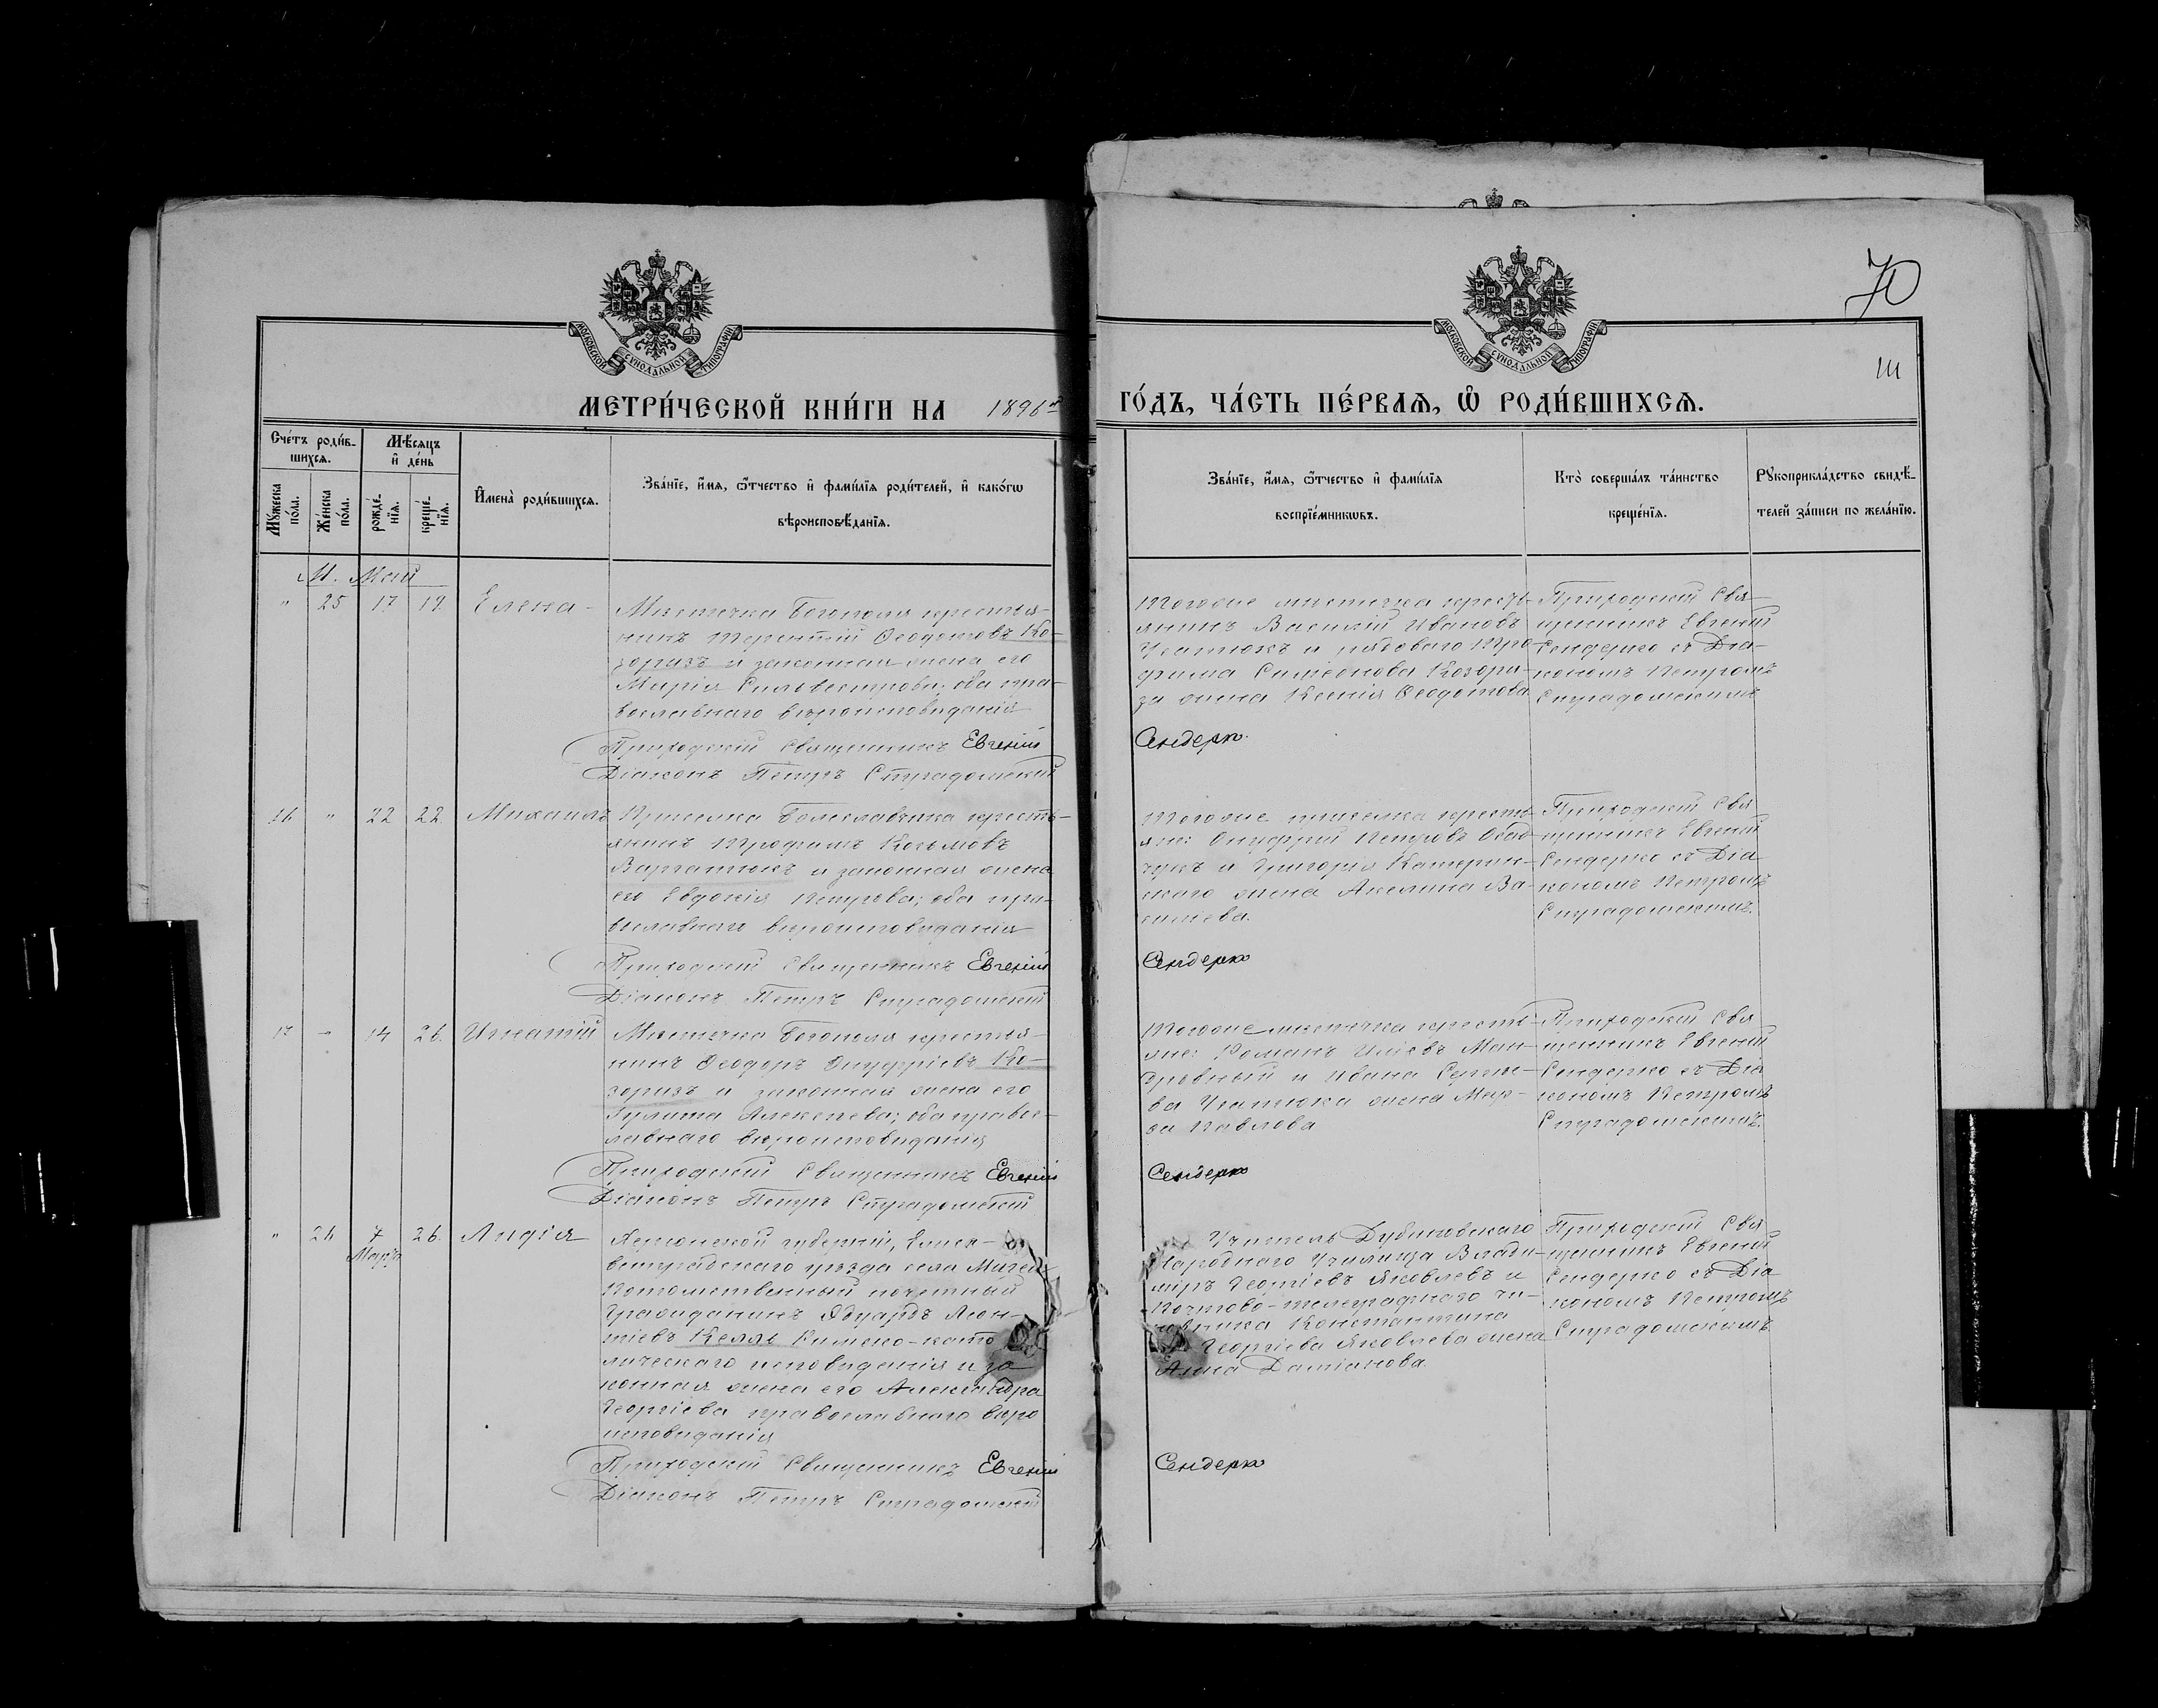 70
МОСКОВСКОЙ СУНОДАЛЬНОЙ ТИПОГРАФІИ
МОСКОВСКОЙ СУНОДАЛЬНОЙ ТИПОГРАФІИ
МЕТРИ́ЧЕСКОЙ КНИ́ГИ НА 1896й
ГО́ДЪ, ЧА́СТЬ ПЕ́РВАЯ, Ѽ РОДИ́ВШИХСЯ.
Сче́тъ роди́в-
шихся.
Мѣ́сяцъ
и҆ де́нь
Му́жеска по́ла.
Же́нска по́ла.
рожде́нїя.
креще́нїя.
И҆мена̀ роди́вшихся.
Зва́нїе, и҆́мя, ѻ҆́тчество и҆ фами́лїя роди́телей, и҆ како́гѡ
вѣроисповѣ́данїя.
Зва́нїе, и҆́мя, ѻ҆́тчество и҆ фами́лїя
воспрїе́мникѡвъ.
Кто̀ соверша́лъ та́инство
креще́нїя.
Рукоприкла́дство свидѣ́-
телей за́писи по жела́нїю.
М. Май
" 25 17 19 Елена
Мѣстечка Богополя крестья-
нинъ Терентій Ѳеодотовъ Ко-
зоризъ и законная жена его
Марія Сильвестрова; оба пра-
вославнаго вѣроисповѣданія
Приходскій Священникъ Евгеній
Діаконъ Петръ Страдомскій
Тогоже мѣстечка кресть-
янинъ Василій Ивановъ
и рядового Тро-
фима Симеонова Козори-
за жена Ксенія Ѳеодотова
Сендерко
Приходскій Свя-
щенникъ Евгеній
Сендерко съ Діа-
кономъ Петромъ
Страдомскимъ
16 " 22 22 Михаилъ
Приселка Болеславчика кресть-
янинъ Трофимъ Козьмовъ
Варгатюкъ и законная жена
его Евдокія Петрова; оба пра-
вославнаго вѣроисповѣданія
Приходскій Священникъ Евгеній
Діаконъ Петръ Страдомскій
Тогоже приселка кресть-
яне: Онуфрій Петровъ
и Григорія Катерин-
скаго жена Акелина Ва-
силіева.
Сендерко
Приходскій Свя-
щенникъ Евгеній
Сендерко съ Діа
кономъ Петромъ
Страдомскимъ.
17 " 14 26 Игнатій
Мѣстечка Богополя крестья-
нинъ Ѳеодоръ Онуфріевъ Ко-
зоризъ и законная жена его
Іулита Алексѣева; оба правос-
лавнаго вѣроисповѣданія
Приходскій Священникъ Евгеній
Діаконъ Петръ Страдомскій
Тогоже мѣстечка кресть-
яне: Романъ Иліевъ Ман-
дровный и Ивана Сергіе-
ва жена Мар-
ѳа Павлова
Сендерко
Приходскій Свя
щенникъ Евгеній
Сендерко съ Діа
кономъ Петромъ
Страдомскимъ.
" 26 7 Марта 26 Лидія
Херсонской губерніи, Елиса-
ветградскаго уѣзда села
Потомственный почетный
Гражданинъ Эдуардъ Леон-
тіевъ Келль Римско-като
лическаго исповѣданія и за
конная жена его Александра
Георгіева православнаго вѣро
исповѣданія
Приходскій Священникъ Евгеній
Діаконъ Петръ Страдомскій
Учитель Дубиновскаго
Народнаго Училища Влади-
міръ Георгіевъ Яковлевъ и
Почтово-телеграфнаго чи-
новника Константина
Георгіева Яковлева жена
Анна Даміанова.
Сендерко
Приходскій Свя
щенникъ Евгеній
Сендерко съ Діа
кономъ Петромъ
Страдомскимъ.